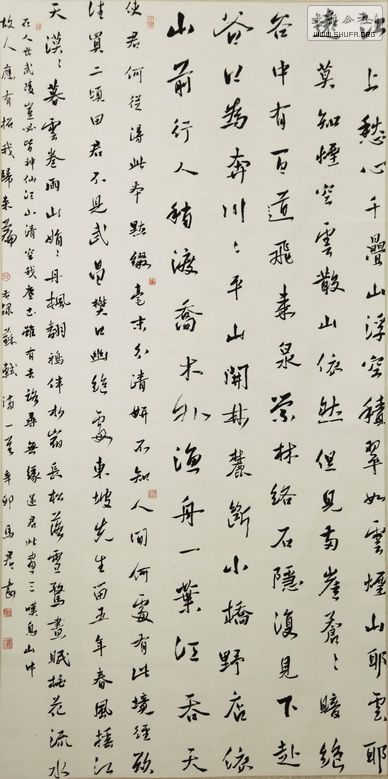 江上愁心千疊山浮空積翠如雲煙山耶雲耶
遠莫知煙空雲散山依然但見兩崖蒼〻暗絕
谷中有百道飛來泉縈林絡石隱復見下赴
谷口為奔川〻平山開林麓斷小橋野店依
山前行人稍渡喬木外漁舟一葉江吞天
使君何從得此本點綴毫末分清妍不知人間何處有此境徑欲
往買二頃田君不見武昌樊口幽絕處東坡先生留五年春風搖江
天漠〻暮雲卷雨山娟〻丹楓翻鴉伴水宿長松落雪驚晝眠桃花流水
在人世武陵豈必皆神仙江山清空我塵土雖有去路尋無緣還君此畫三嘆息山中
故人應有招我歸來篇 蘇軾詩一首 辛卯 馬君書
WWW.SHUFR.ORG